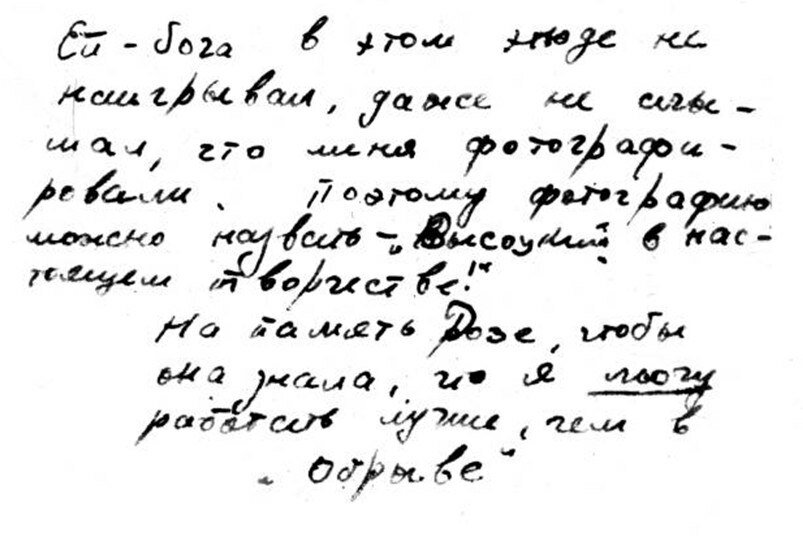 Ей-бога в этом этюде не
наигрывал, даже не слы-
шал, что меня фотографи-
ровали. Поэтому фотографию
можно назвать – „Высоцкий в нас-
тоящем творчестве!"
На память Розе, чтобы
она знала, что я могу
работать лучше, чем в
„Обрыве"